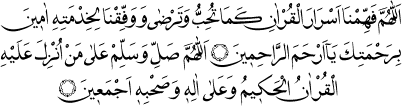 اَللّٰهُمَّ فَهِّمْنَا اَسْرَارَ الْقُرْاٰنِ كَمَا تُحِبُّ وَتَرْضٰى وَوَفِّقْنَا لِخِدْمَتِهِ اٰمِينَ
بِرَحْمَتِكَ يَا اَرْحَمَ الرَّاحِمِينَ ۞ اَللّٰهُمَّ صَلِّ وَسَلِّمْ عَلٰى مَنْ اُنْزِلَ عَلَيْهِ
الْقُرْاٰنُ الْحَكِيمُ وَعَلٰى اٰلِهِ وَصَحْبِهِ اَجْمَعِينَ ۞